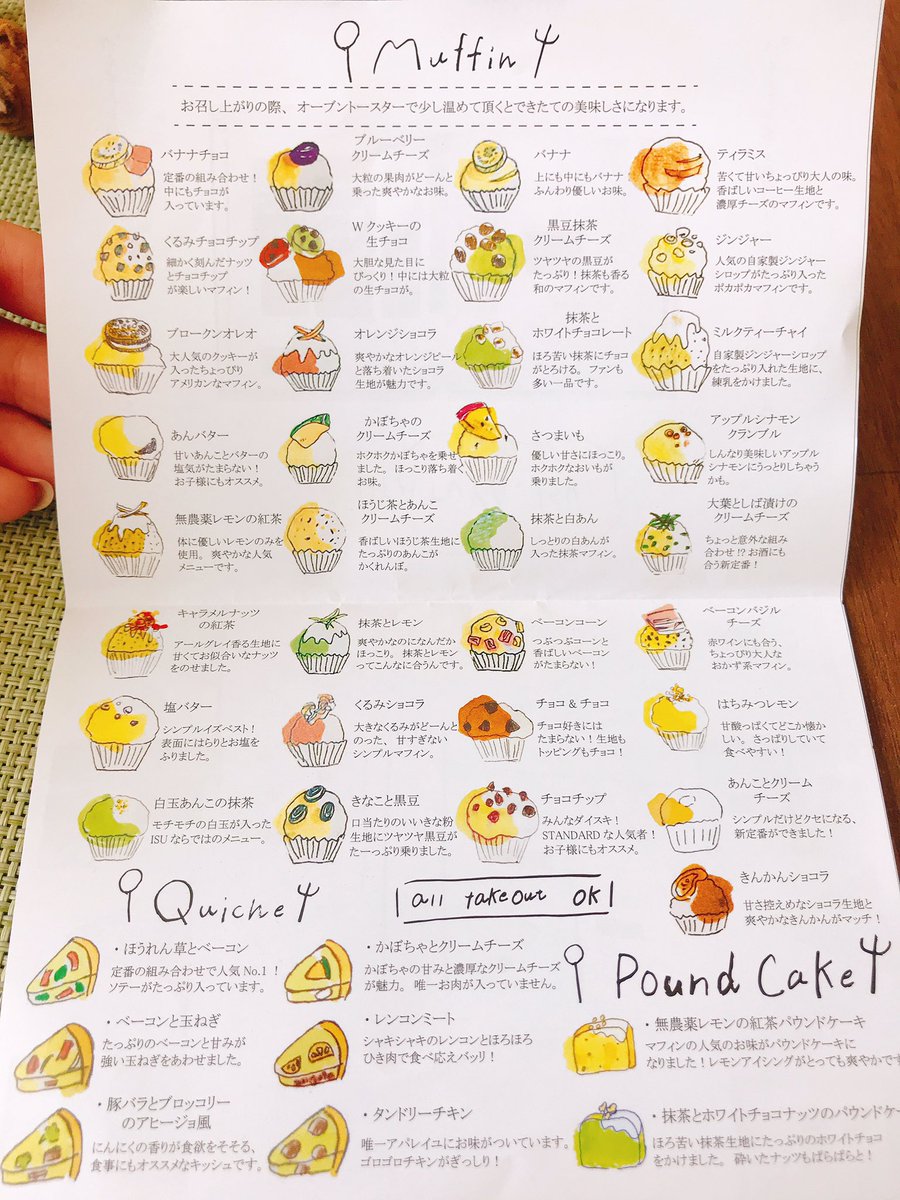 Muffin
お召し上がりの際、オーブントースターで少し温めて頂くとできたての美味しさになります。
バナナチョコ
定番の組み合わせ！
中にもチョコが
入っています。
ブルーベリー
クリームチーズ
大粒の果肉がどーんと
乗った爽やかなお味。
バナナ
上にも中にもバナナ！
ふんわり優しいお味。
ティラミス
苦くて甘いちょっぴり大人の味。
香ばしいコーヒー生地と
濃厚チーズのマフィンです。
くるみチョコチップ
細かく刻んだナッツ
とチョコチップ
が楽しいマフィン！
Wクッキーの
生チョコ
大胆な見た目に
びっくり！中には大粒
の生チョコが。
黒豆抹茶
クリームチーズ
ツヤツヤの黒豆が
たっぷり！抹茶も香る
和のマフィンです。
ジンジャー
人気の自家製ジンジャー
シロップがたっぷり入った
ポカポカマフィン。
ブロークンオレオ
大人気のクッキーが
入ったちょっぴり
アメリカンなマフィン。
オレンジショコラ
爽やかなオレンジピール
と落ち着いたショコラ
生地が魅力です。
抹茶と
ホワイトチョコレート
ほろ苦い抹茶にチョコ
がとろける。ファンも
多い一品です。
ミルクティーチャイ
自家製ジンジャーシロップ
をたっぷり入れた生地に、
練乳をかけました。
あんバター
甘いあんことバターの
塩気がたまらない！
お子様にもオススメ。
かぼちゃの
クリームチーズ
ホクホクかぼちゃを乗せ
ました。ほっこり落ち着く
お味。
さつまいも
優しい甘さにほっこり。
ホクホクなおいもが
乗りました。
アップルシナモン
クランブル
しんなり美味しいアップル
シナモンにうっとりしちゃう
かも。
無農薬レモンの紅茶
体に優しいレモンのみを
使用。爽やかな人気
メニューです。
ほうじ茶とあんこ
クリームチーズ
香ばしいほうじ茶生地に
たっぷりのあんこが
かくれんぼ。
抹茶と白あん
しっとりの白あんが
入った抹茶マフィン。
大葉としば漬けの
クリームチーズ
ちょっと意外な組み
合わせ!?お酒にも
合う新定番！
キャラメルナッツ
の紅茶
アールグレイ香る生地に
甘くてお似合いなナッツ
をのせました。
抹茶とレモン
爽やかなのになんだか
ほっこり。抹茶とレモン
ってこんなに合うんです。
ベーコンコーン
つぶつぶコーンと
香ばしいベーコン
がたまらない！
ベーコンバジル
チーズ
赤ワインにも合う、
ちょっぴり大人な
おかず系マフィン。
塩バター
シンプルイズベスト！
表面にはらりとお塩を
ふりました。
くるみショコラ
大きなくるみがどーんと
のった、甘すぎない
シンプルマフィン。
チョコ＆チョコ
チョコ好きには
たまらない！生地も
トッピングもチョコ！
はちみつレモン
甘酸っぱくてどこか懐か
しい。さっぱりしていて
食べやすい！
白玉あんこの抹茶
モチモチの白玉が入った
ISUならではのメニュー。
きなこと黒豆
口当たりのいいきな粉
生地にツヤツヤ黒豆が
たーっぷり乗りました。
チョコチップ
みんなダイスキ！
STANDARDな人気者！
お子様にもオススメ。
あんことクリーム
チーズ
シンプルだけどクセになる、
新定番ができました！
きんかんショコラ
甘さ控えめなショコラ生地と
爽やかなきんかんがマッチ！
Quiche
all takeout OK
・ほうれん草とベーコン
定番の組み合わせで人気No.1！
ソテーがたっぷり入っています。
・かぼちゃとクリームチーズ
かぼちゃの甘みと濃厚なクリームチーズ
が魅力。唯一お肉が入っていません。
・ベーコンと玉ねぎ
たっぷりのベーコンと甘みが
強い玉ねぎをあわせました。
・レンコンミート
シャキシャキのレンコンとほろほろ
ひき肉で食べ応えバッリ！
・豚バラとブロッコリー
のアヒージョ風
にんにくの香りが食欲をそそる、
食事にもオススメなキッシュです。
・タンドリーチキン
唯一アパレイユにお味がついています。
ゴロゴロチキンがぎっしり！
Pound Cake
・無農薬レモンの紅茶パウンドケーキ
マフィンの人気のお味がパウンドケーキに
なりました！レモンアイシングがとっても爽やかです
・抹茶とホワイトチョコナッツのパウンドケー
ほろ苦い抹茶生地にたっぷりのホワイトチョコ
をかけました。砕いたナッツもぱらぱらと！